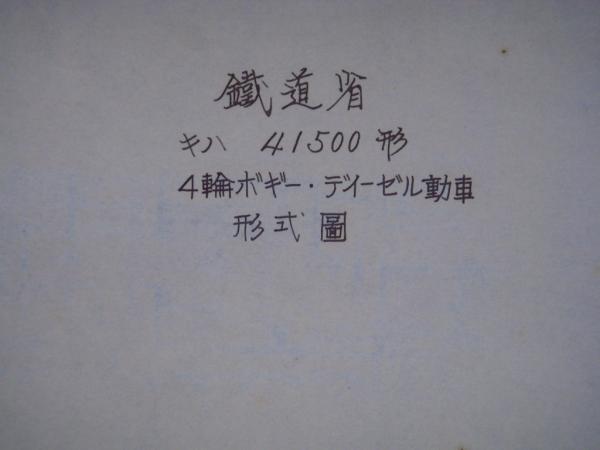 鐵道省
キハ 41500形
4輪ボギー・デイーゼル動車
形式圖